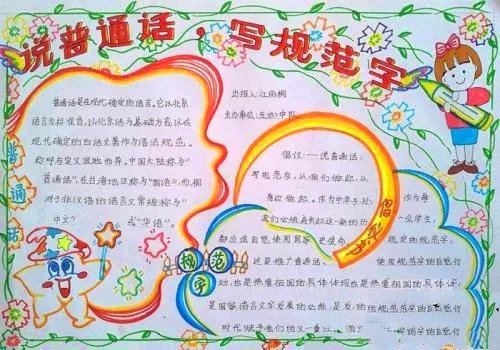 说普通话，写规范字
普通话
普通话是在现代确定的语言。它以北京
语音为标准音，以北京话为基础方言，以在
现代确定的白话文著作为语法规范。
称呼与定义因地而异。中国大陆称为“
普通话”，在台湾地区称为“国语”，而相
对于非汉语的语言又常被称为“
中文”或“华语”。
出报人：江雨桐
主办单位：五(6)中队
倡议
倡议：一说普通话，
写规范字，从我们做起，从
身边做起。作为中华子孙，作为每一位学生，
我们必须肩负起这一新的历史使命，
都应该自觉使用国家规定的规范字，
这是推广普通话、使用规范字的自觉行
动，也是热爱祖国的具体体现也是热爱祖国的具体体
是国家语言文字发展的必然，是发的的规范范字的自觉行
时代赋予我们的又一重
规范字